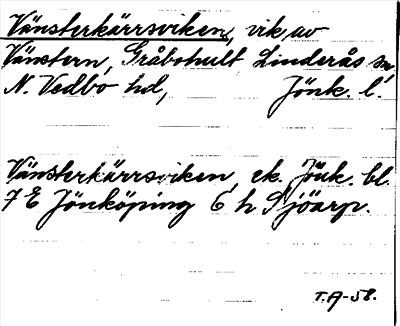 Vänsterkärrsviken, vik av
Vänstern, Gråbohult Linderås sn,
N. Vedbo hd, Jönk. l.
Vänsterkärrsviken ek. Jönk. bl.
7 E Jönköping 6 h Sjöarp.
T.A-58.